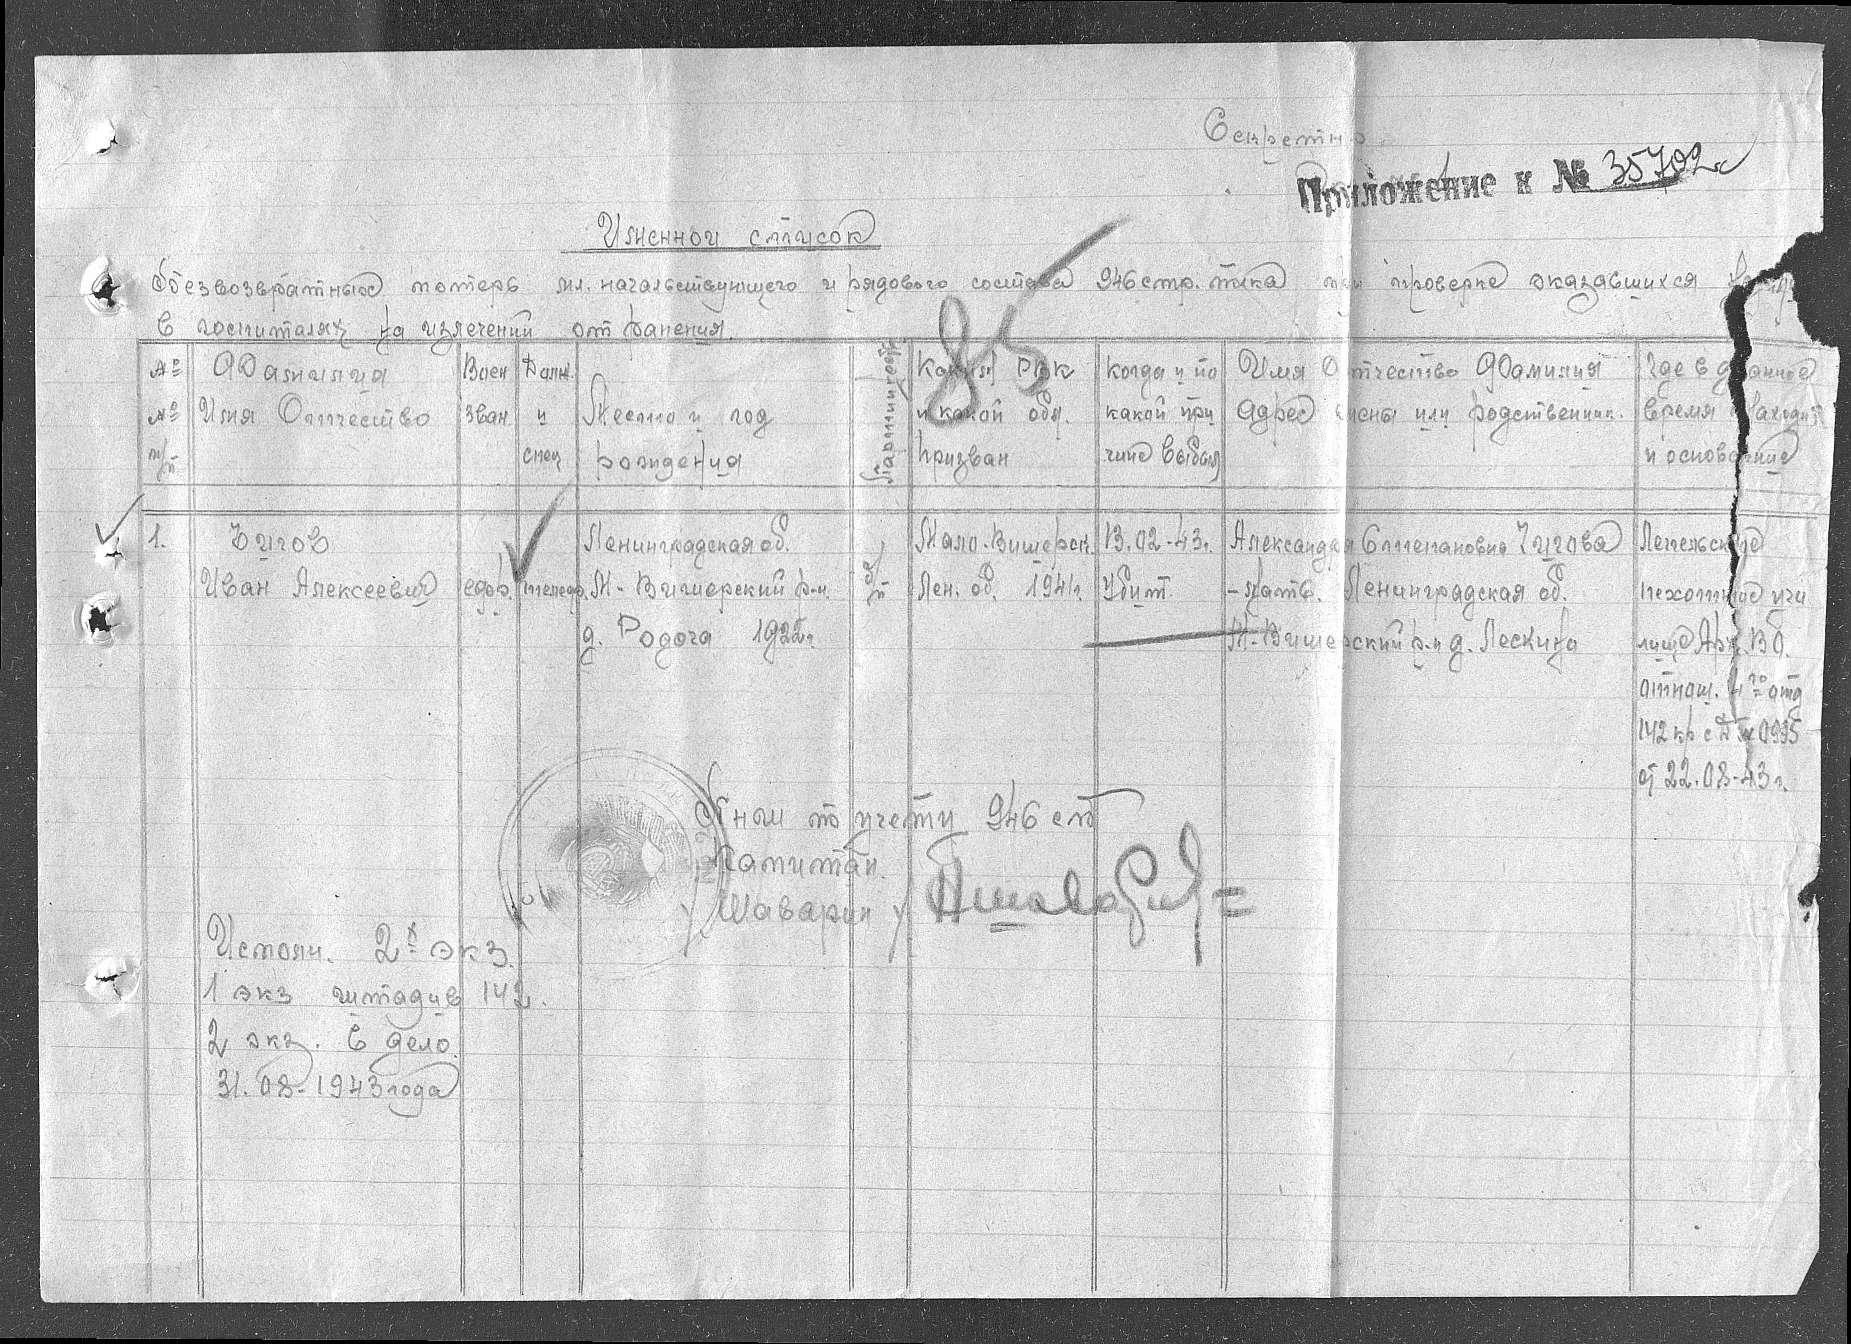 Секретно
Приложение к № 35702с
Именной список
безвозвратных потерь мл. начальствующего и рядового состава 946 стр. полка при проверке оказавшихся
в госпиталях на излечении от ранения.
85
№ № п/п
Фамилия Имя Отчество
Воен зван
Должн. и спец
Место и год рождения
Партийность
Каким РВК и какой обл. призван
Когда и по какой при чине выбыл
Имя Отчество Фамилия Адрес жены или родственник.
Где в данное время находится и основание
1.
Чигов
Иван Алексеевич
ефр.
телеф.
Ленинградская об.
М-Вишерский р-н.
д. Родоча 1922 г.
б/п
Мало-Вишерск.
Лен. об. 1941 г.
13.02-43 г.
Убит.
Александра Степановна Чигова
-мать. Ленинградская об.
М-Вишерский р-н д.
Лепельское
пехотное учи
лище Арх. ВО.
отнош. 4го отд
142 кр сд № 0995
от 22.08-43 г.
ПНШ по учету 946 сп
Капитан
/Шаварин/
Исполн. 2х экз.
1 экз штадив 142.
2 экз. в дело.
31.08-1943 года